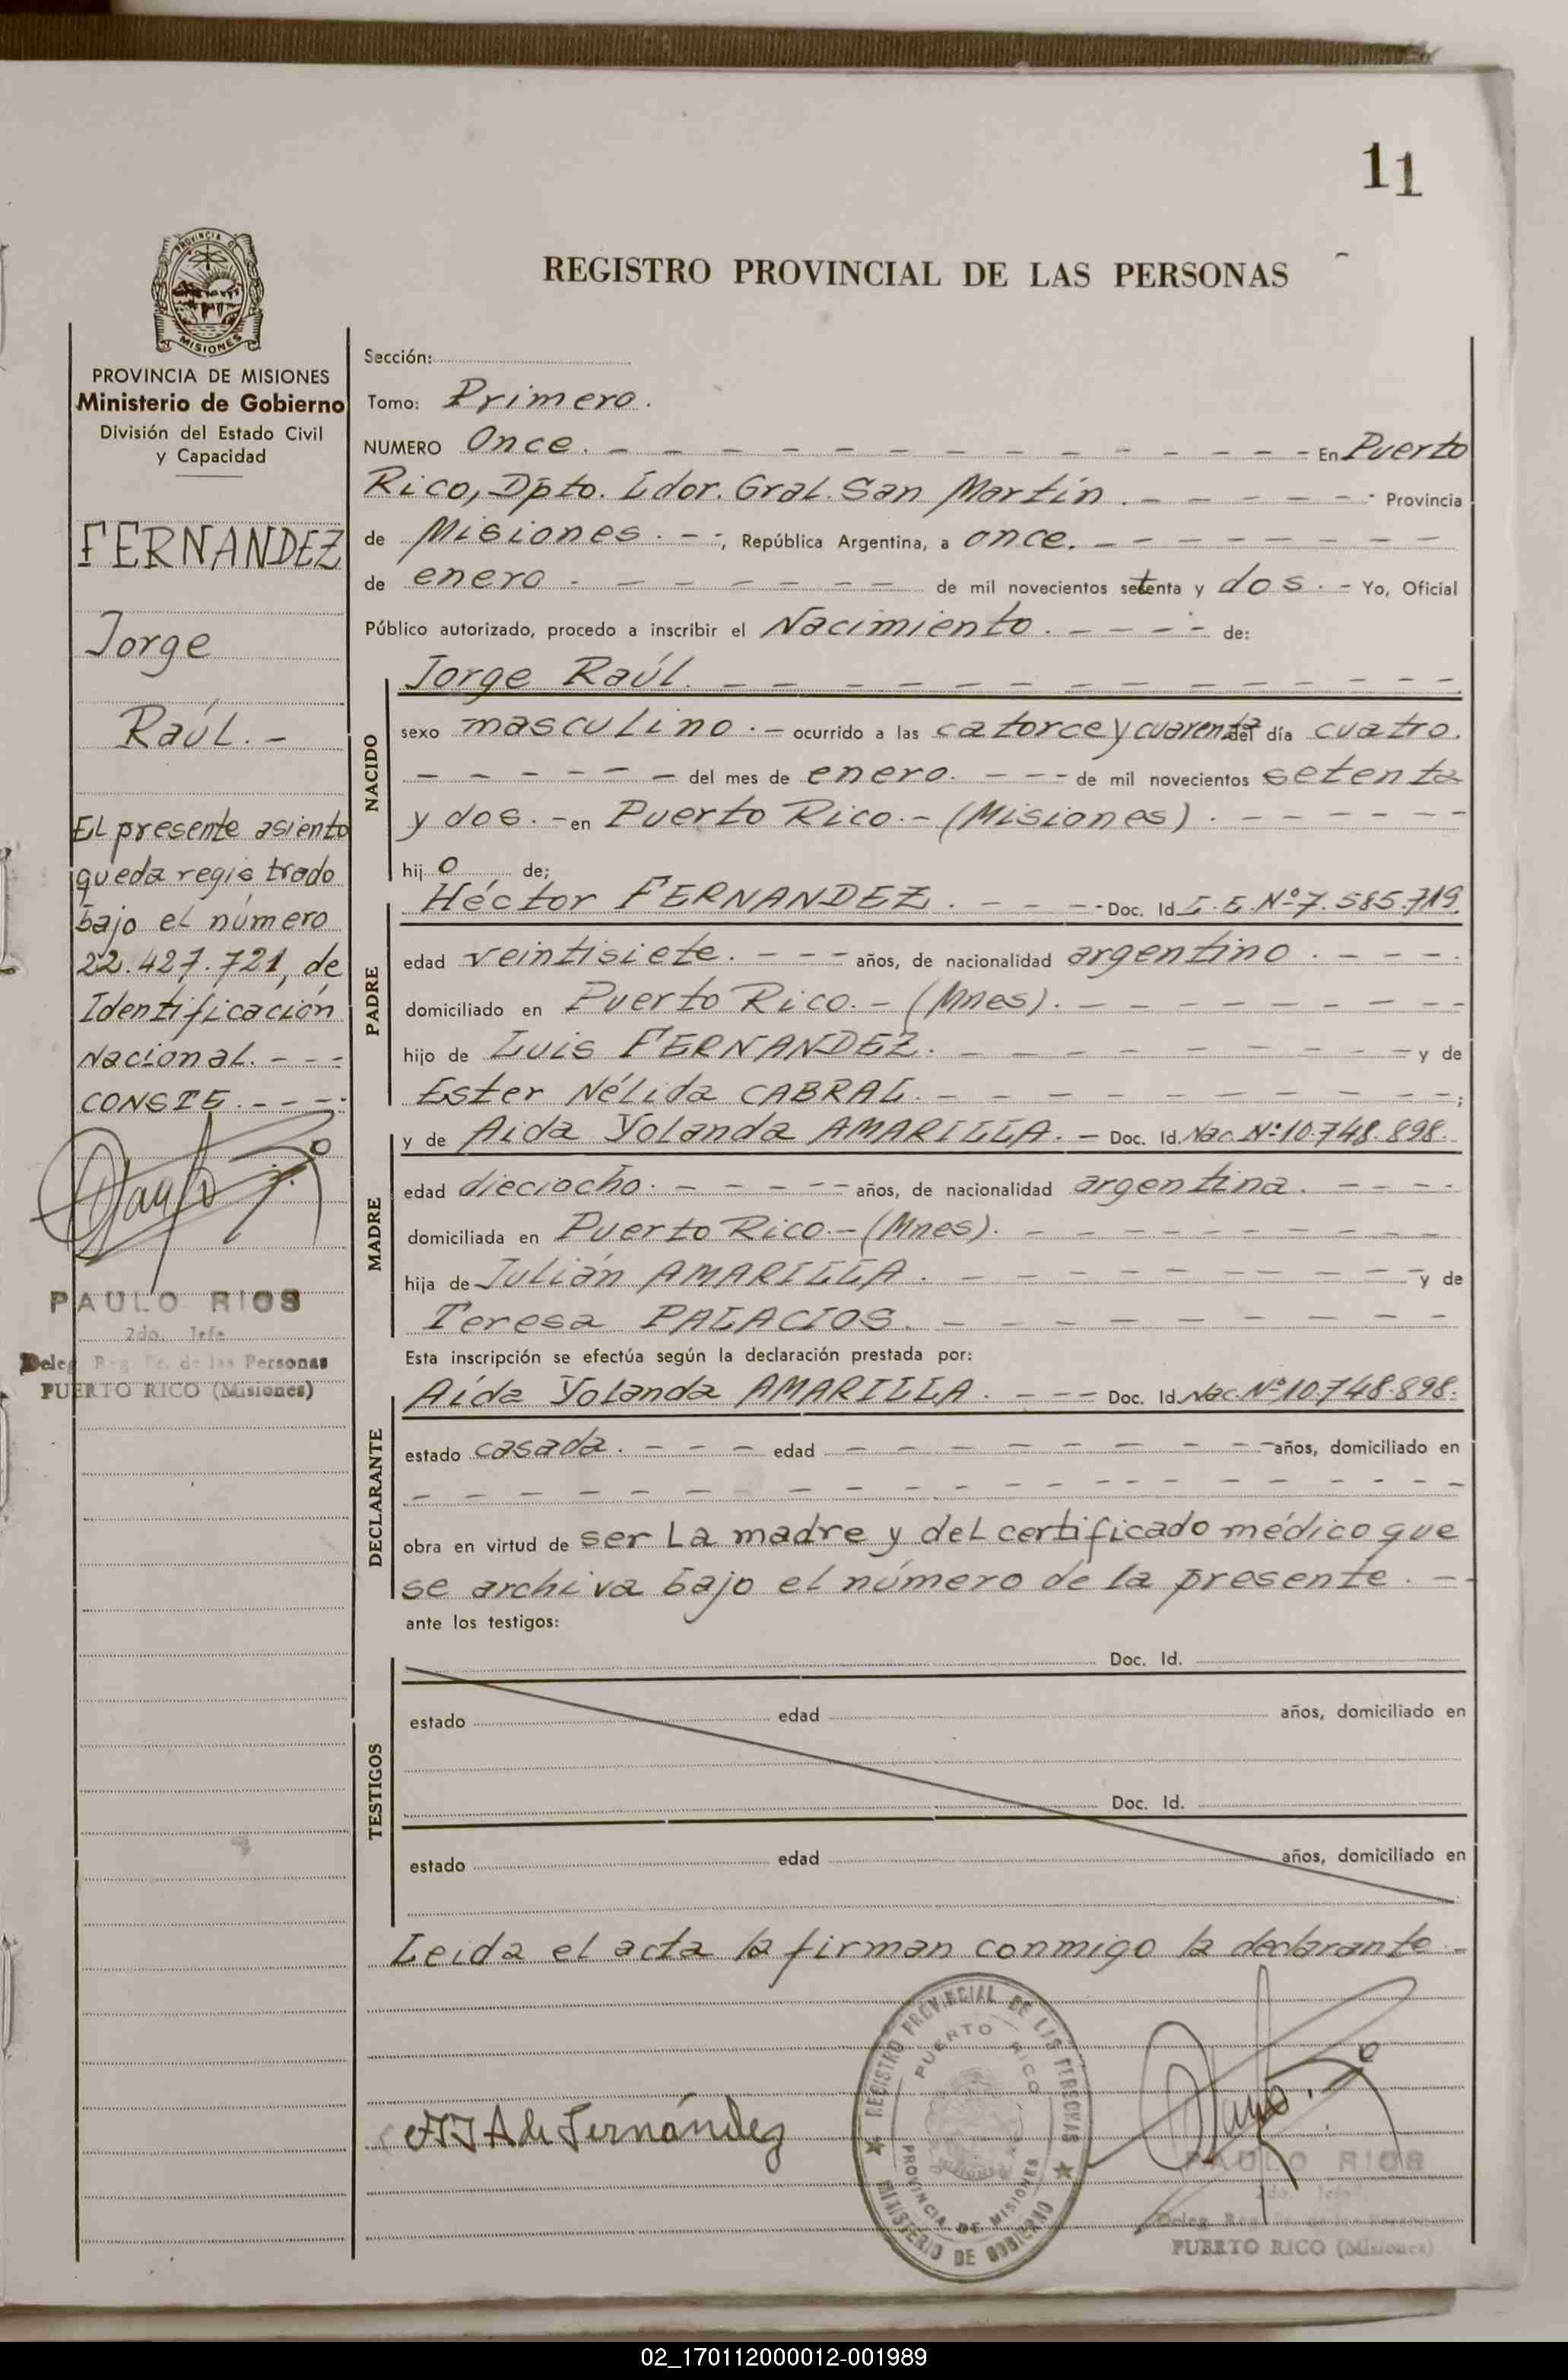 11
REGISTRO PROVINCIAL DE LAS PERSONAS
PROVINCIA DE MISIONES
PROVINCIA DE MISIONES
Ministerio de Gobierno
División del Estado Civil
y Capacidad
FERNANDEZ
Jorge
Raúl. -
El presente asiento
queda registrado
bajo el número
22.427.721, de
Identificación
Nacional. - - -
CONSTE. - - -
PAULO RIOS
2do. Jefe
Deleg. Reg. Pc. de las Personas
PUERTO RICO (Misiones)
Sección:
Tomo: Primero.
NUMERO Once. - - - - - - - - - - - - - En Puerto
Rico, Dpto. Ldor. Gral. San Martín. - - - - - Provincia
de Misiones. - -, República Argentina, a once. - - - - - - - -
de enero. - - - - - - - de mil novecientos setenta y dos. - Yo, Oficial
Público autorizado, procedo a inscribir el Nacimiento. - - - - de:
NACIDO
Jorge Raúl. - - - - - - - - - - - - - -
sexo masculino. - ocurrido a las catorce y cuarenta del día cuatro.
- - - - - - del mes de enero. - - - de mil novecientos setenta
y dos. - en Puerto Rico. - (Misiones). - - - - - -
hijo de;
PADRE
Héctor FERNANDEZ. - - - - Doc. Id L.E. Nº 7.585.719.
edad veintisiete. - - - años, de nacionalidad argentino. - - - -
domiciliado en Puerto Rico. - (Mnes). - - - - - - - - -
hijo de Luis FERNANDEZ. - - - - - - - - - y de
Ester Nélida CABRAL. - - - - - - - - - - ;
MADRE
y de Aida Yolanda AMARILLA. - Doc. Id. Nac. Nº 10.748.898.
edad dieciocho. - - - - - - años, de nacionalidad argentina. - - - -
domiciliada en Puerto Rico. - (Mnes). - - - - - - - - -
hija de Julián AMARILLA. - - - - - - - - - y de
Teresa PALACIOS. - - - - - - - - - -
Esta inscripción se efectúa según la declaración prestada por:
DECLARANTE
Aída Yolanda AMARILLA. - - - Doc. Id. Nac. Nº 10.748.898.
estado casada. - - - edad - - - - - - - - - años, domiciliado en
- - - - - - - - - - - - - - - - - - -
obra en virtud de ser La madre y del certificado médico que
se archiva bajo el número de la presente. - -
ante los testigos:
TESTIGOS
Doc. Id.
estado edad años, domiciliado en
Doc. Id.
estado edad años, domiciliado en
Leida el acta la firman conmigo la declarante -
A Y A de Fernández
REGISTRO PROVINCIAL DE LAS PERSONAS
PUERTO RICO
PROVINCIA DE MISIONES
MINISTERIO DE GOBIERNO
PAULO RIOS
2do. Jefe
PUERTO RICO (Misiones)
02_170112000012-001989